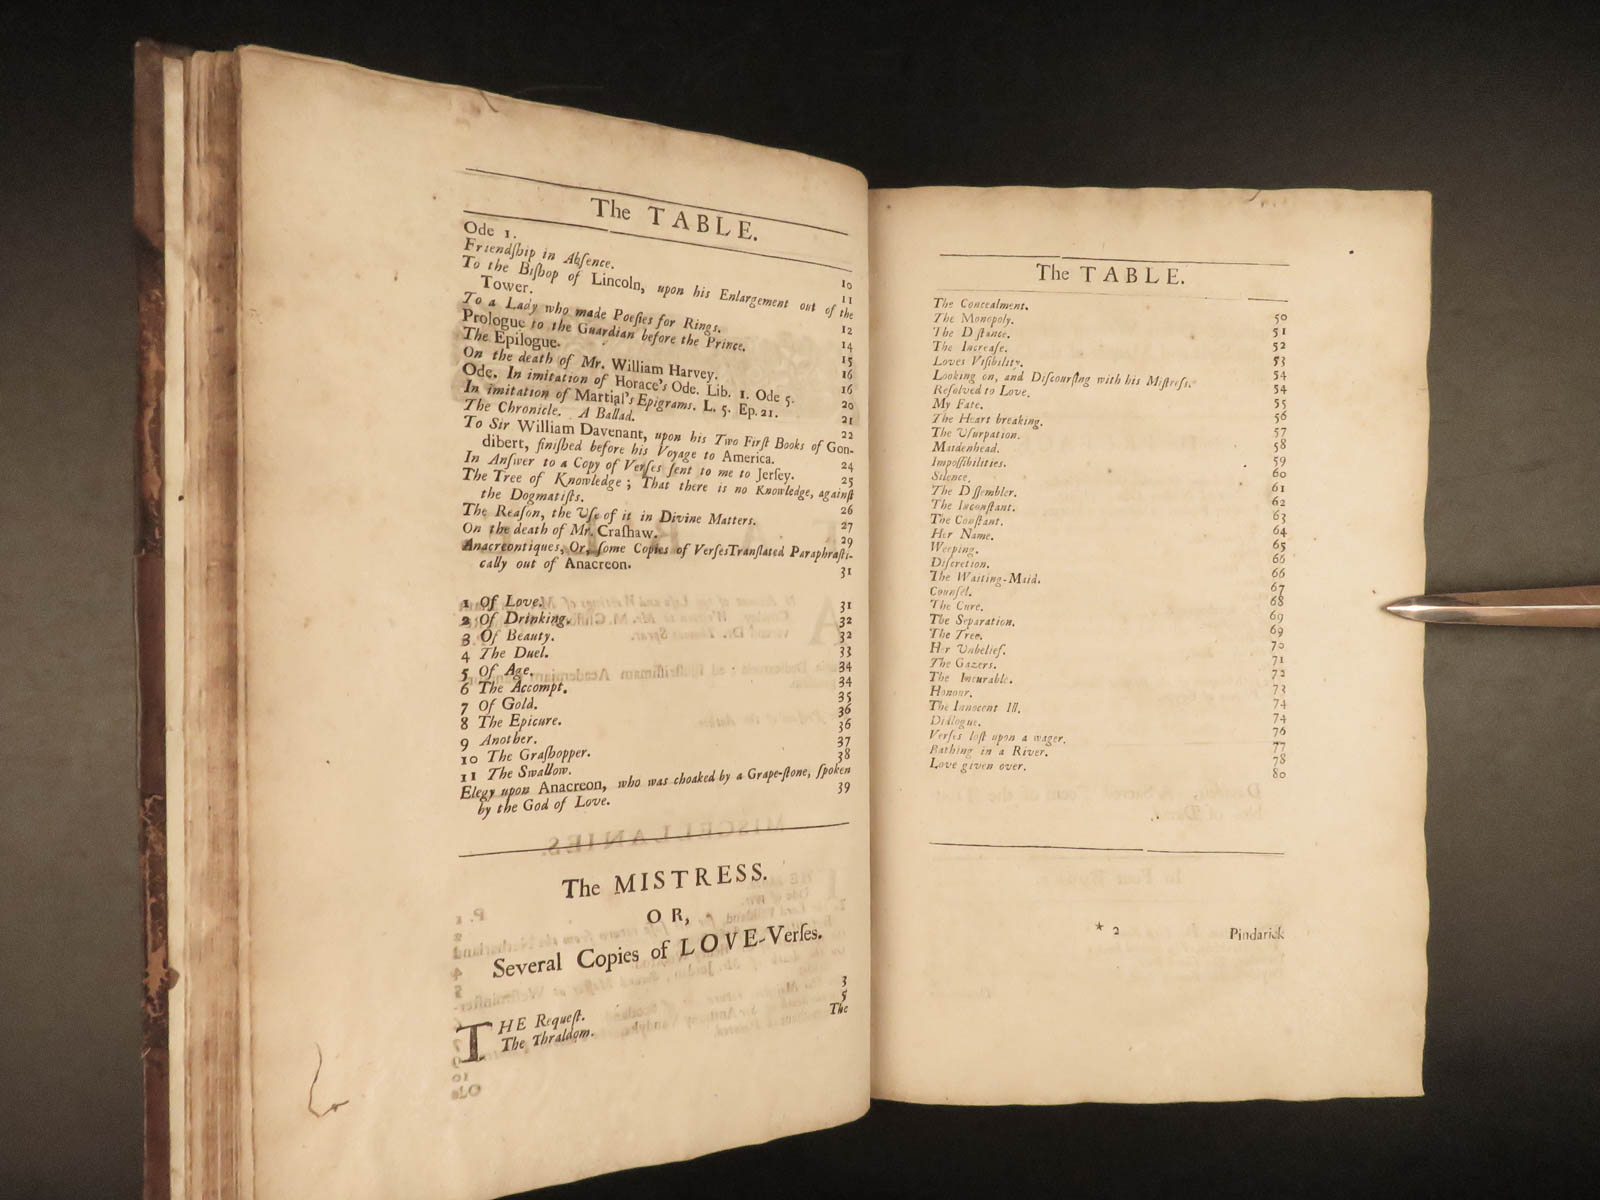 The TABLE.
Ode 1. 10
Friendſhip in Abſence. 11
To the Biſhop of Lincoln, upon his Enlargement out of the
Tower. 12
To a Lady who made Poeſies for Rings. 14
Prologue to the Guardian before the Prince. 15
The Epilogue. 16
On the death of Mr. William Harvey. 16
Ode. In imitation of Horace's Ode. Lib. 1. Ode 5. 20
In imitation of Martial's Epigrams. L. 5. Ep. 21. 21
The Chronicle. A Ballad. 22
To Sir William Davenant, upon his Two Firſt Books of Gon-
dibert, finiſhed before his Voyage to America. 24
In Anſwer to a Copy of Verſes ſent to me to Jerſey. 25
The Tree of Knowledge; That there is no Knowledge, againſt
the Dogmatiſts. 26
The Reaſon, the Uſe of it in Divine Matters. 27
On the death of Mr. Craſhaw. 29
Anacreontiques, Or, ſome Copies of Verſes Tranſlated Paraphraſti-
cally out of Anacreon. 31
1 Of Love. 31
2 Of Drinking. 32
3 Of Beauty. 32
4 The Duel. 33
5 Of Age. 34
6 The Accompt. 34
7 Of Gold. 35
8 The Epicure. 36
9 Another. 36
10 The Graſhopper. 37
11 The Swallow. 38
Elegy upon Anacreon, who was choaked by a Grape-ſtone, ſpoken
by the God of Love. 39
The MISTRESS.
OR,
Several Copies of LOVE-Verſes.
THE Requeſt. 3
The Thraldom. 5
The
The TABLE.
The Concealment. 50
The Monopoly. 51
The Dſtance. 52
The Increaſe. 53
Loves Viſibility. 54
Looking on, and Diſcourſing with his Miſtreſs. 54
Reſolved to Love. 55
My Fate. 56
The Heart breaking. 57
The Uſurpation. 58
Maidenhead. 59
Impoſſibilities. 60
Silence. 61
The Dſſembler. 62
The Inconſtant. 63
The Conſtant. 64
Her Name. 65
Weeping. 66
Diſcretion. 66
The Waiting-Maid. 67
Counſel. 68
The Cure. 69
The Separation. 69
The Tree. 70
Her Unbelief. 71
The Gazers. 72
The Incurable. 73
Honour. 74
The Innocent Ill. 74
Dialogue. 76
Verſes loſt upon a wager. 77
Bathing in a River. 78
Love given over. 80
* 2
Pindarick